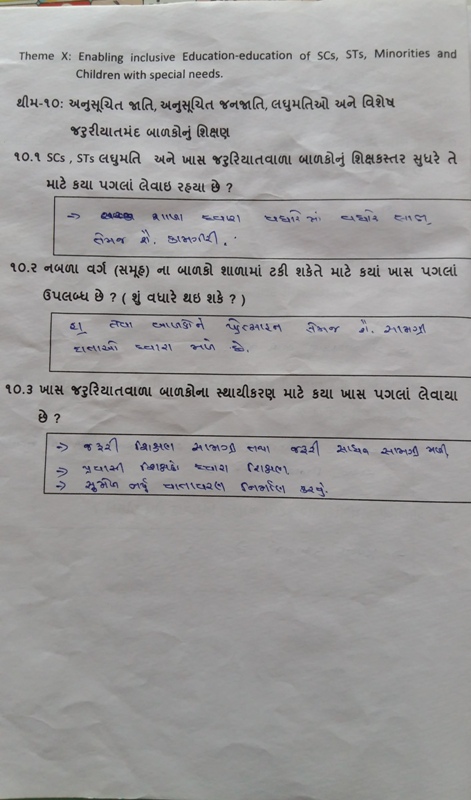 Theme X: Enabling inclusive Education-education of SCs, STs, Minorities and
Children with special needs.
થીમ-૧૦: અનુસૂચિત જાતિ, અનુસૂચિત જનજાતિ, લઘુમતિઓ અને વિશેષ
જરુરીયાતમંદ બાળકોનું શિક્ષણ
૧૦.૧ SCs , STs લઘુમતિ અને ખાસ જરુરિયાતવાળા બાળકોનું શિક્ષકસ્તર સુધરે તે
માટે કયા પગલાં લેવાઇ રહયા છે ?
→ શાળા ધ્વારા વધારેમાં વધારે લાભ
તેમજ શૈ. કામગીરી.
૧૦.૨ નબળા વર્ગ (સમૂહ) ના બાળકો શાળામાં ટકી શકેતે માટે કયાં ખાસ પગલાં
ઉપલબ્ધ છે ? ( શું વધારે થઇ શકે ? )
તેવા બાળકોને પ્રોત્સાહન તેમજ શૈ. સામગ્રી
દાતાઓ ધ્વારા મળે છે.
૧૦.3 ખાસ જરુરિયાતવાળા બાળકોના સ્થાયીકરણ માટે કયા ખાસ પગલાં લેવાયા
છે ?
→ જરૂરી શિક્ષણ સામગ્રી તથા જરૂરી સાધન સામગ્રી મળી
→ પ્રવાસી શિક્ષકો ધ્વારા શિક્ષણ
→ સુમેળ ભર્યું વાતાવરણ નિર્માણ કરવું.